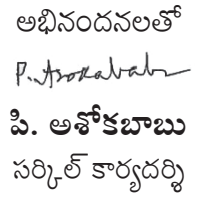 అభినందనలతో
P. Asokababu
పి. అశోకబాబు
సర్కిల్ కార్యదర్శి